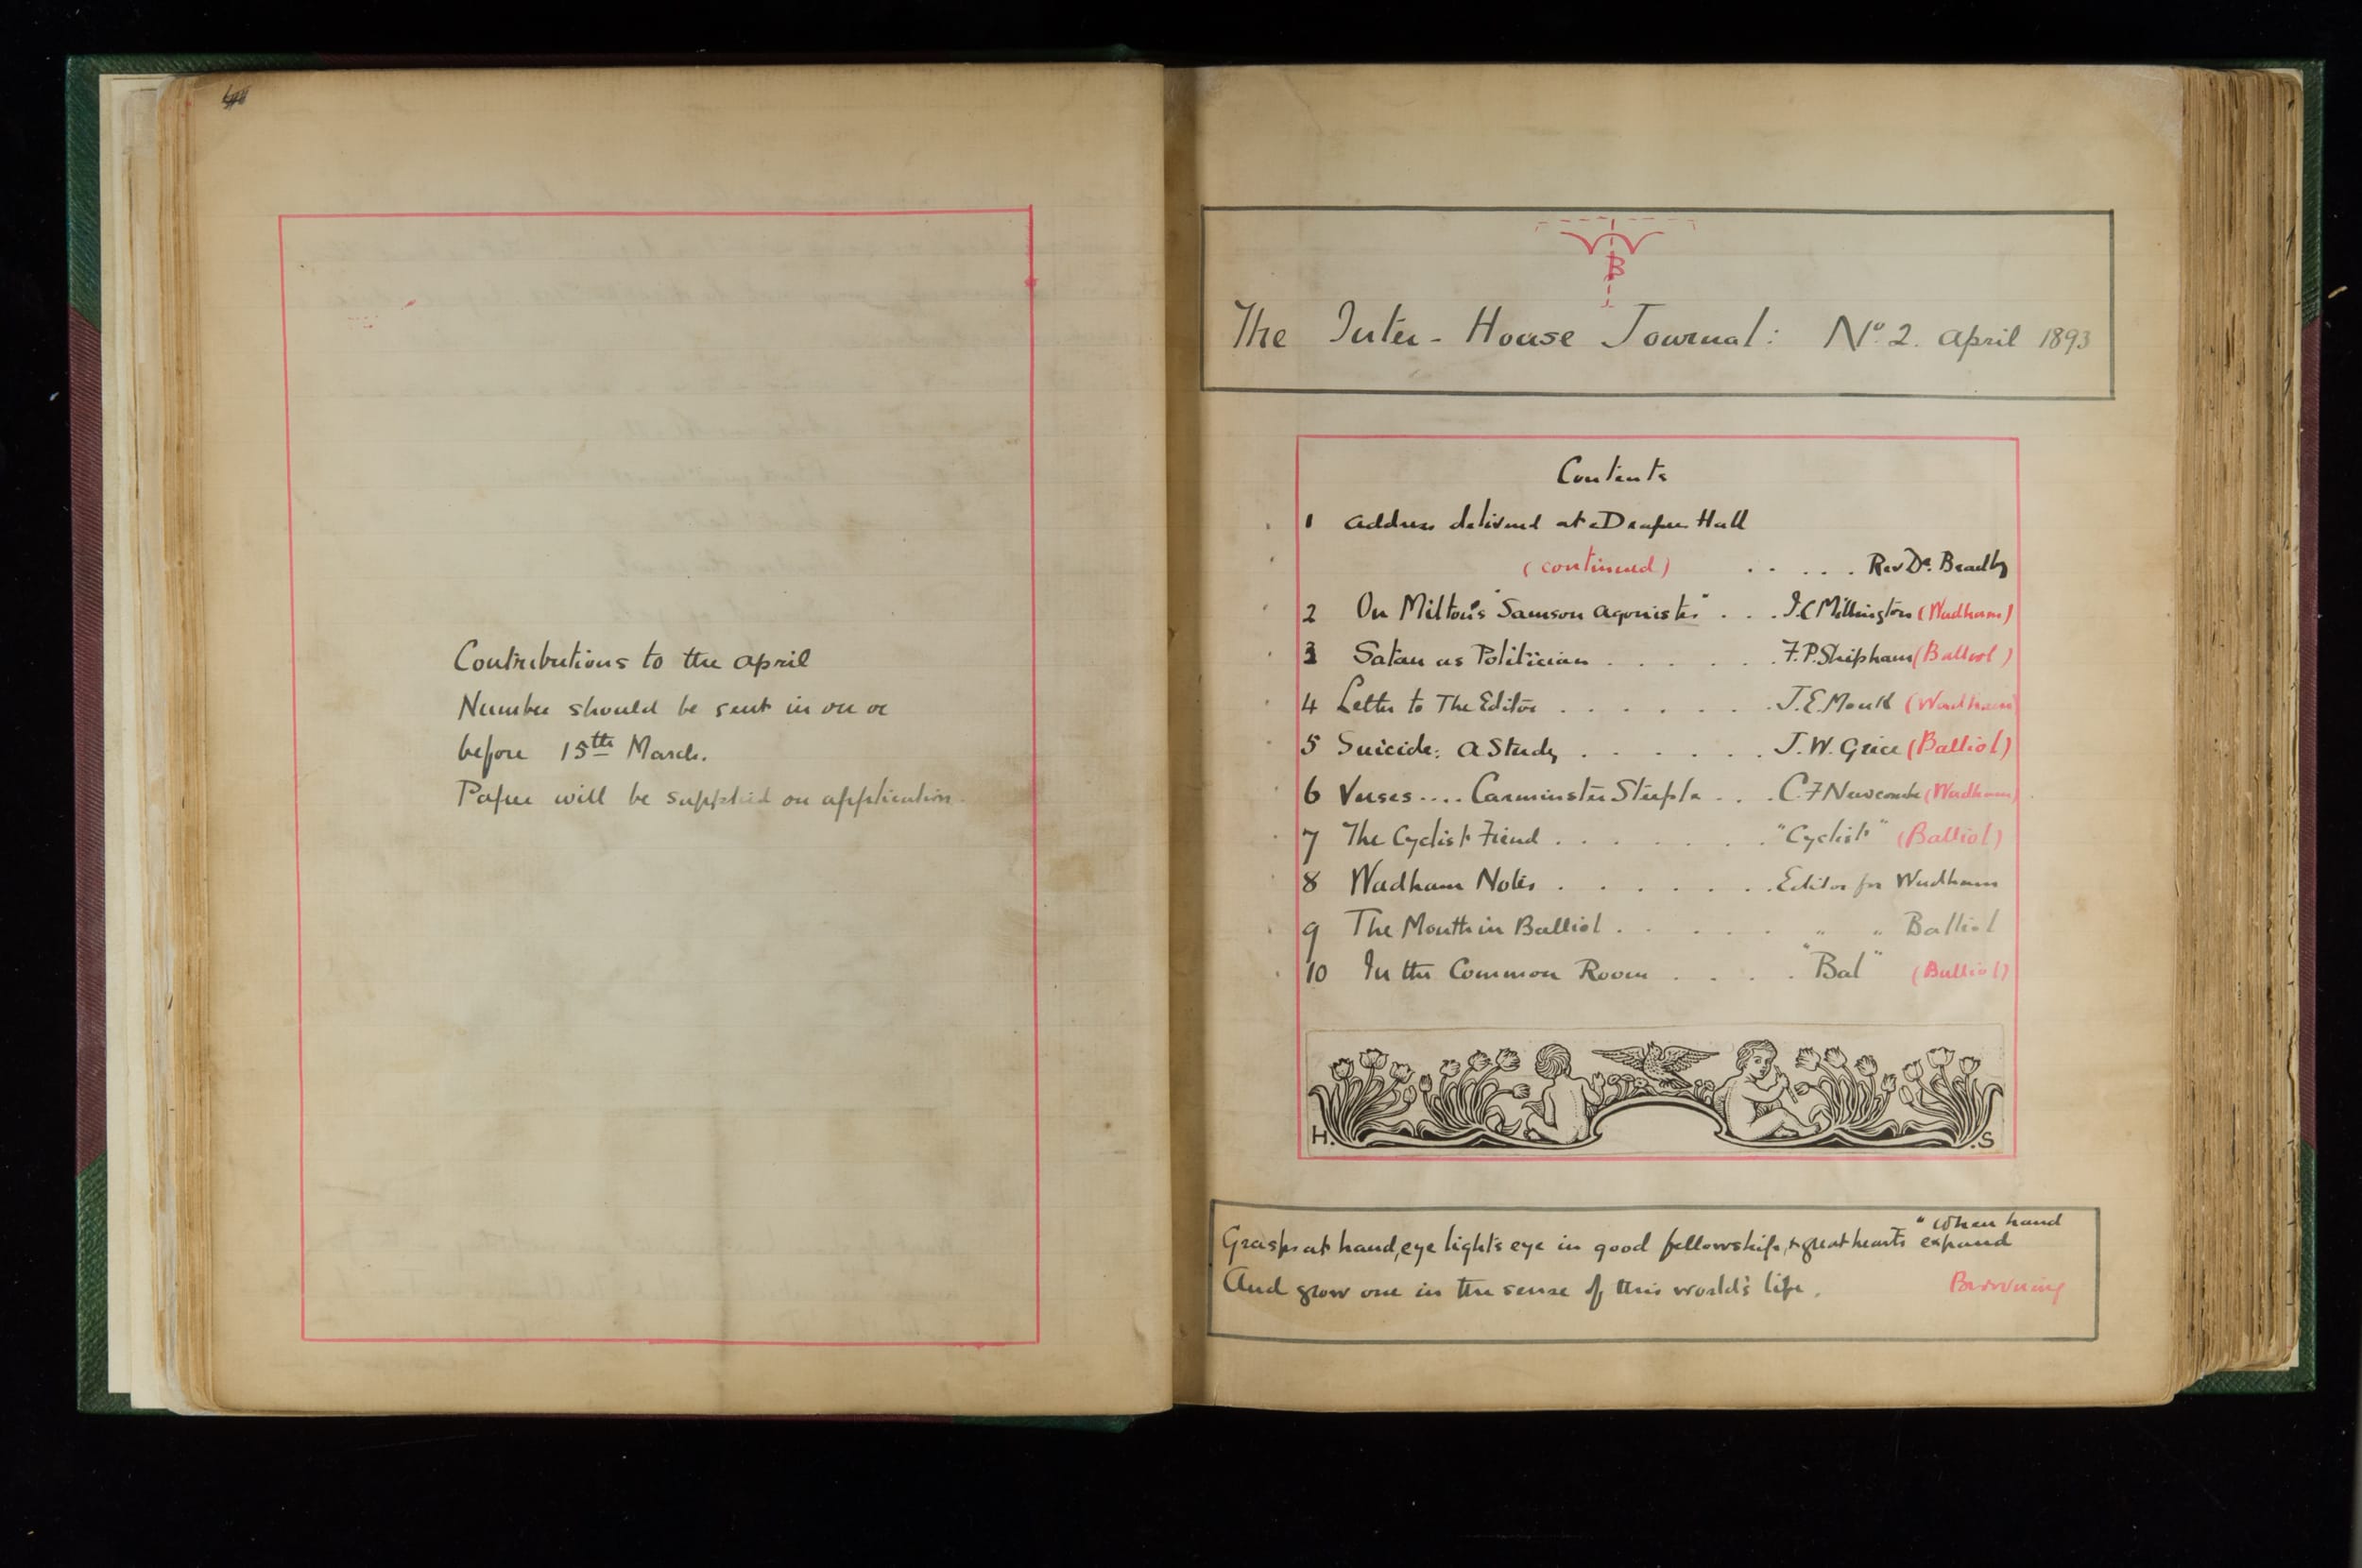 Contributions to the April
Number should be sent in on or
before 15th March.
Paper will be supplied on application.
B
The Inter-House Journal: No. 2. April 1893
Contents
1 Address delivered at Draper Hall
(continued) . . . . . Rev Dr. Bradby
2 On Milton's "Samson Agonistes" . . . J.C Millington (Wadham)
3 Satan as Politician . . . . . . F.P. Shipham (Balliol)
4 Letter to The Editor . . . . . . J.E. Monk (Wadham)
5 Suicide: A Study . . . . . J.W. Grice (Balliol)
6 Verses .... Carminster Steeple . . . C.F Newcombe (Wadham)
7 The Cyclist Fiend . . . . . . "Cyclist" (Balliol)
8 Wadham Notes . . . . . . Editor for Wadham
9 The Month in Balliol . . . . . " " Balliol
10 In the Common Room . . . . "Bal" (Balliol)
H. .S
"When hand
Grasps at hand, eye lights eye in good fellowship, & great hearts expand
And grow one in the sense of this world's life. Browning